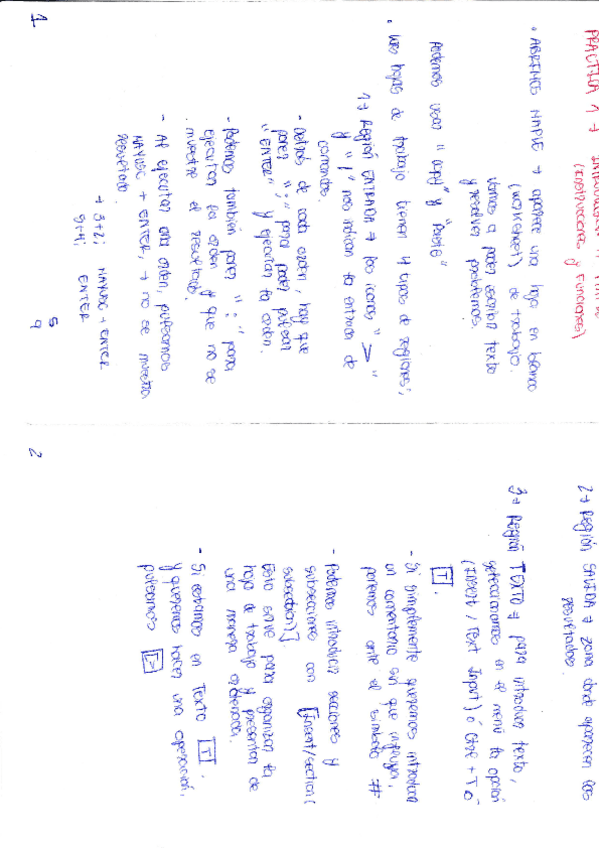 PRÁCTICA 1 →
(Instrucciones y Funciones)
• ABRIMOS MAPLE → aparece una hoja en blanco
(worksheet) de trabajo.
Vamos a poder escribir texto
y resolver problemas.
Podemos usar "copy" y "paste"
• Las hojas de trabajo tienen 4 tipos de regiones;
1→ Región ENTRADA → los iconos ">"
y "[" nos indican la entrada de
comandos.
- Detrás de cada orden, hay que
poner ";" para poder pulsar
"ENTER" y ejecutar la orden.
- Podemos también poner ":" para
ejecutar la orden y que no se
muestre el resultado.
- Al ejecutar una orden, pulsamos
MAYUSC + ENTER, → no se muestra
resultado.
→ 3+2; MAYUSC + ENTER
5+4; ENTER
5
9
1
2→ Región SALIDA → zona donde aparecen los
resultados.
3→ Región TEXTO → para introducir texto,
seleccionamos en el menú la opción
(Insert / Text Input) ó Ctrl + T ó
[T].
- Si simplemente queremos introducir
un comentario sin que influya,
ponemos ante el símbolo #
- Podemos introducir secciones y
subsecciones con [Insert/section(
subsection)]
Esto sirve para organizar la
hoja de trabajo y presentar de
una manera ordenada.
- Si estamos en TEXTO [T].
y queremos hacer una operación,
pulsamos [>
2